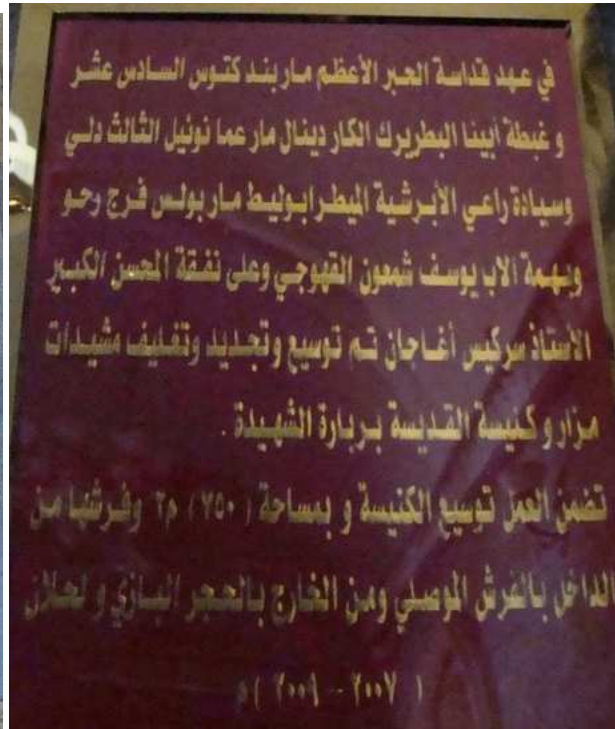 في عهد قداسة الحبر الأعظم مار بندكتوس السادس عشر
و غبطة أبينا البطريرك الكاردينال مار عمانوئيل الثالث دلي
وسيادة راعي الأبرشية الميطرابوليط مار بولس فرج رحو
وبهمة الاب يوسف شمعون القهوجي وعلى نفقة المحسن الكبير
الأستاذ سركيس أغاجان تم توسيع وتجديد وتغليف مشيدات
مزار و كنيسة القديسة بربارة الشهيدة .
تضمن العمل توسيع الكنيسة و بمساحة ( ٧٥٠ ) م٢ وفرشها من
الداخل بالفرش الموصلي ومن الخارج بالحجر البازي و لحلان
( ٢٠٠٧ - ٢٠٠٩ ) م